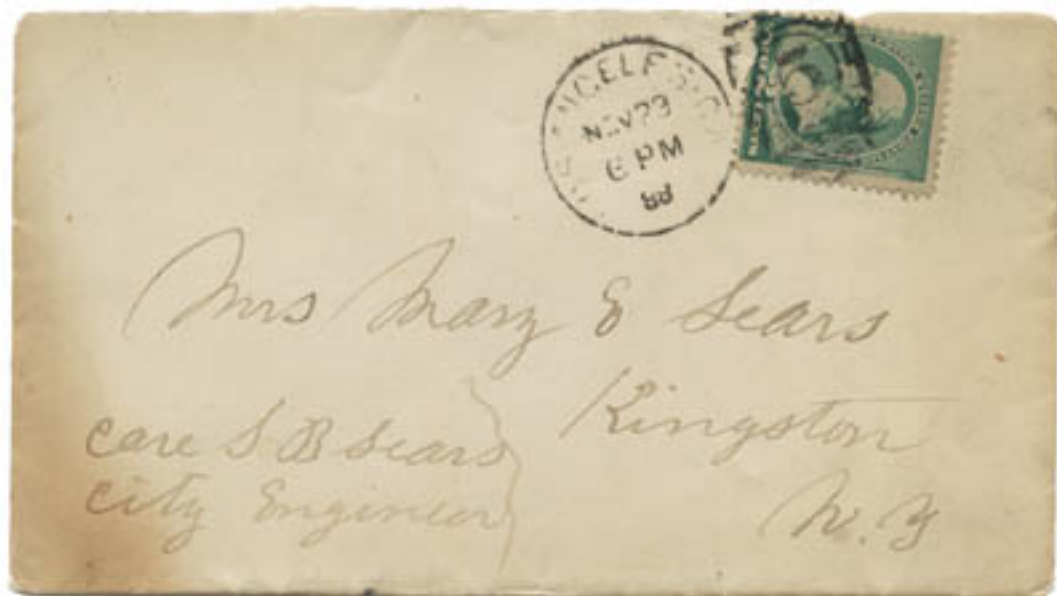 ANGELES
NOV 23
6 PM
88
Mrs Mary E Sears
Kingston
N.Y
care S B Sears
City Engineer